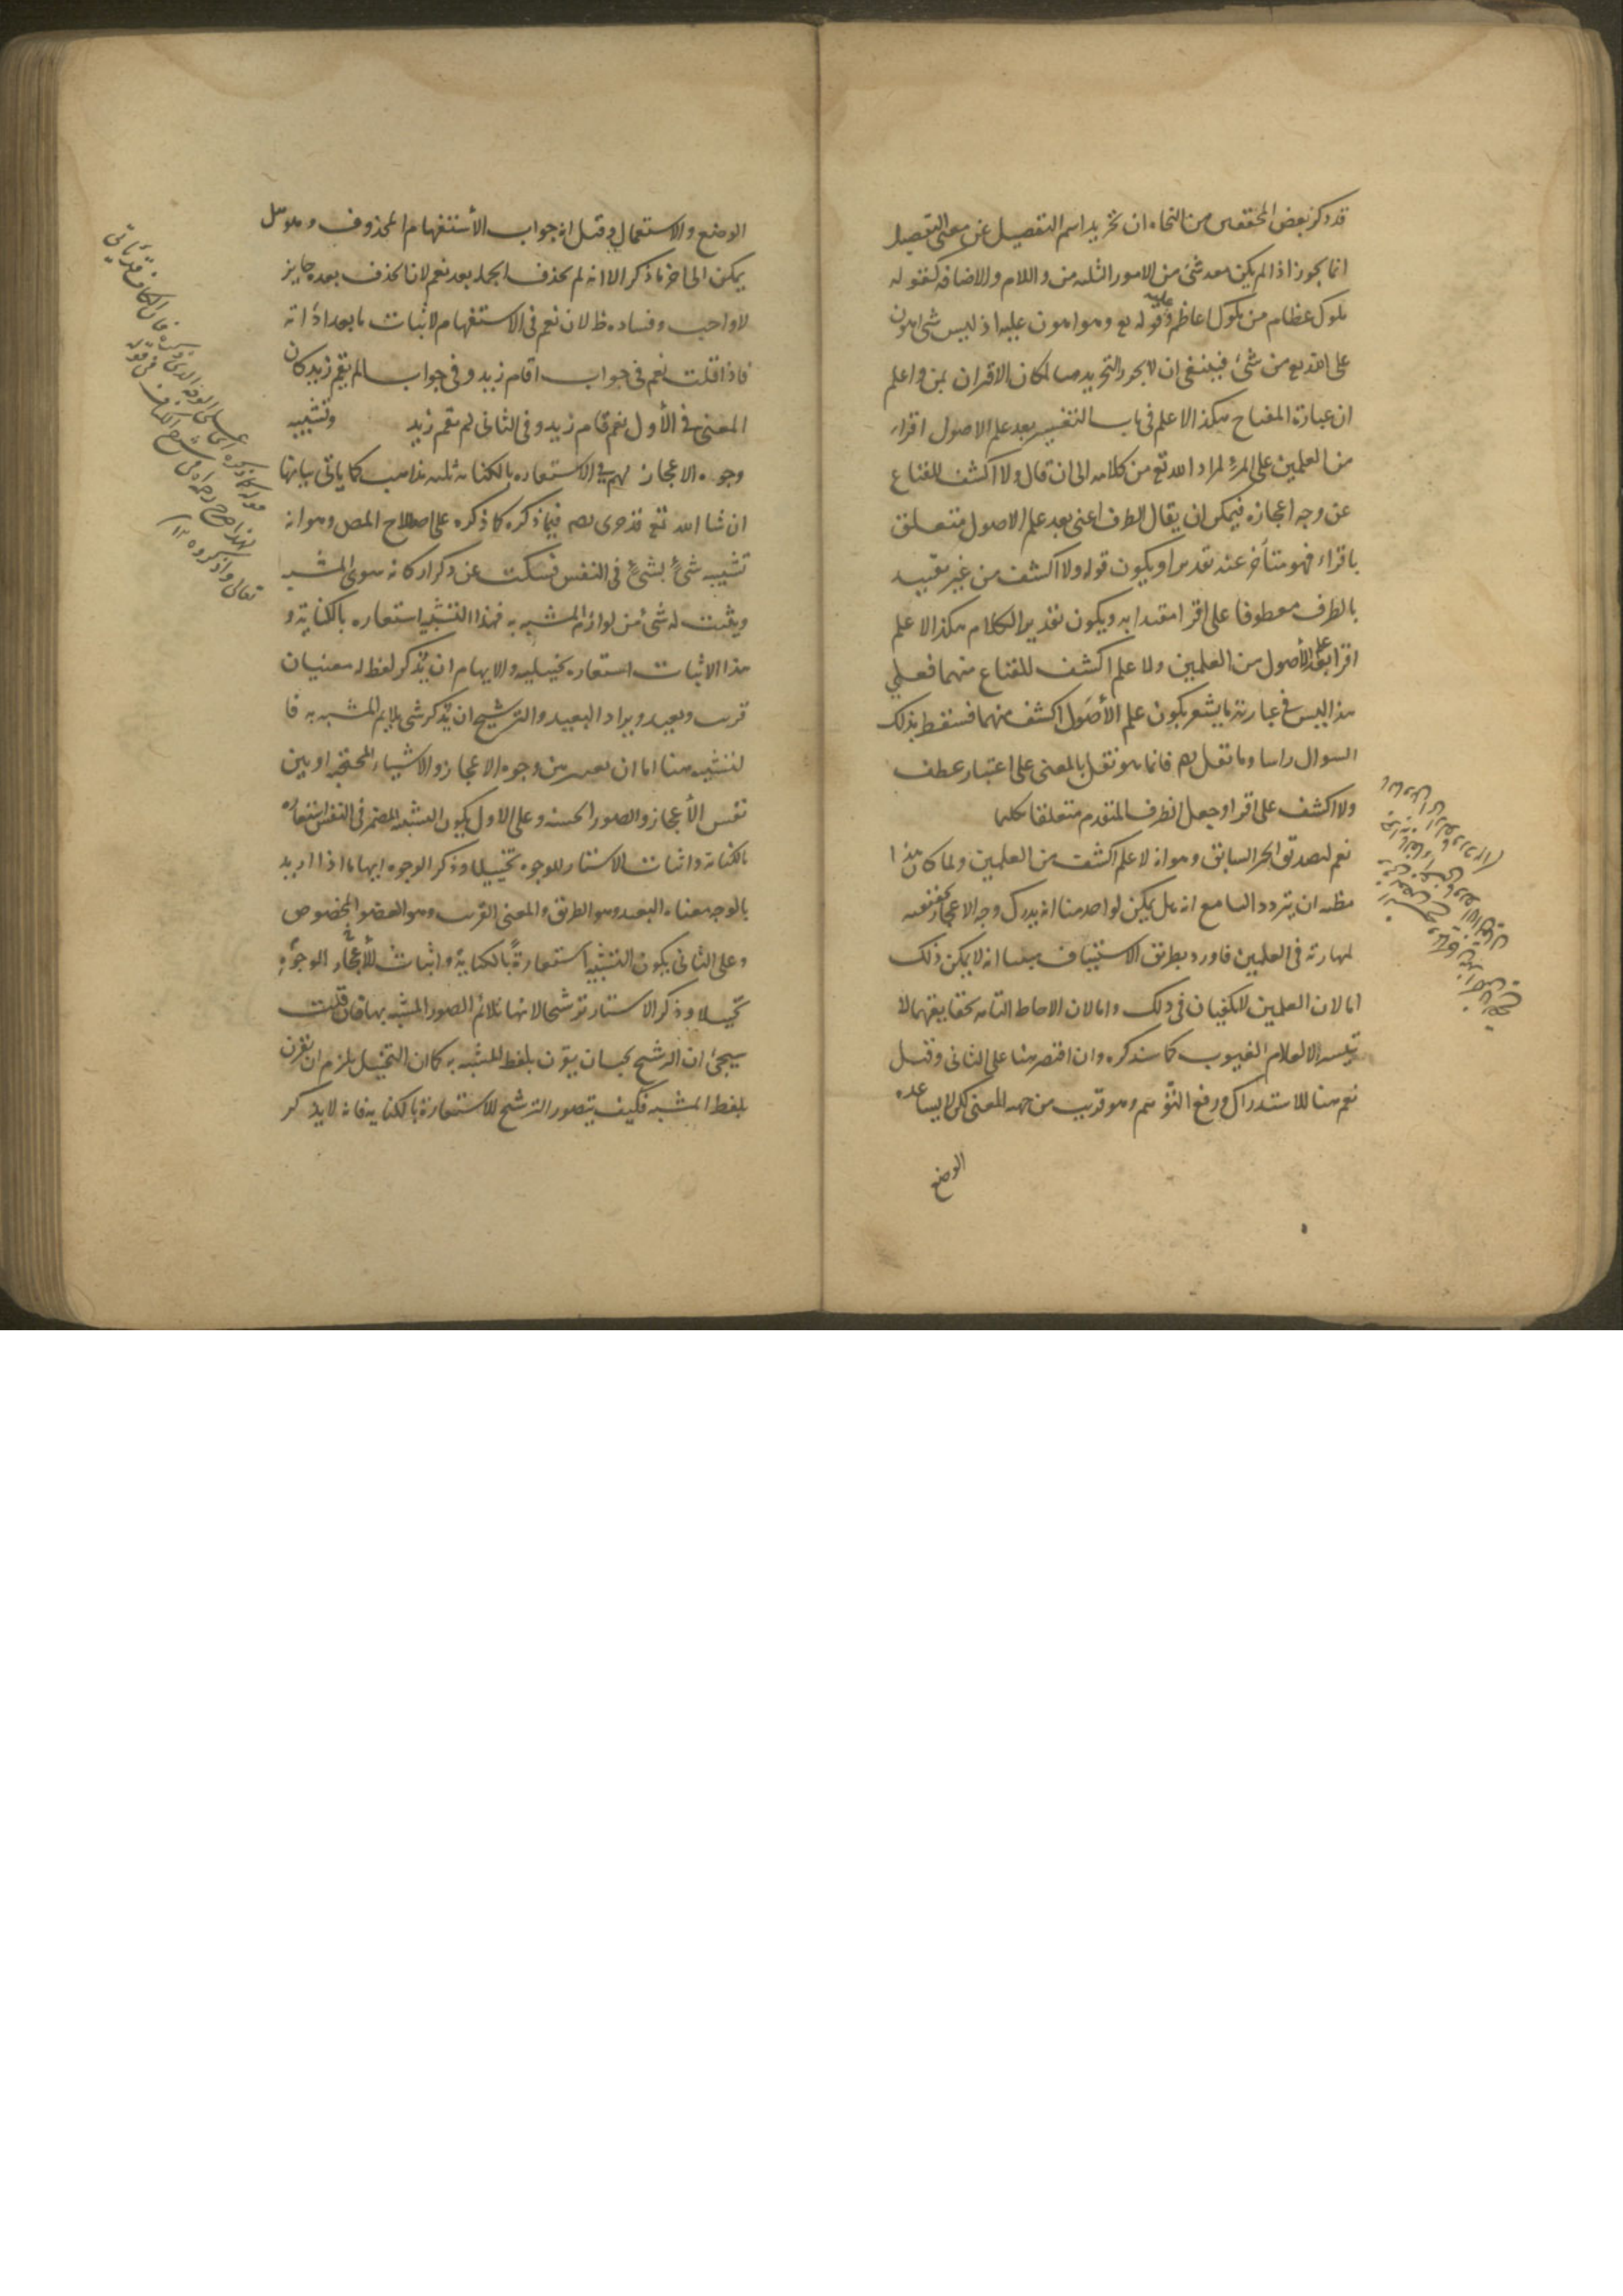 قد ذكر بعض المحققين من النحاه ان تجريد اسم التفصيل عن معنى التفصيل
انما يجوز اذا لم يكن معه شئ من الامور الثلثه من واللام والاضافه كقوله
ملوك عظام من ملوك اعاظم وقوله تع وهو اهون عليه اذ ليس شئ اهون
على الله تع من شئ فينبغى ان لا يجوز التجريد هنا لمكان الاقتران بمن واعلم
ان عبارة المفتاح هكذا لا علم فى باب التفسير بعد علم الاصول اقراء
من العلمين على المرء لمراد الله تع من كلامه الى ان قال ولا اكشف للقناع
عن وجه اعجازه فيمكن ان يقال الظرف اعنى بعد علم الاصول متعلق
باقراء فهو متأخر عنه تقديرا ويكون قوله ولا اكشف من غير تقييد
بالظرف معطوفا على اقرا مقيدا به ويكون تقدير الكلام هكذا لا علم
اقرا بعد علم الأصول من العلمين ولا علم اكشف للقناع منهما فعلى
هذا ليس فى عبارته ما يشعر بكون علم الأصول اكشف منهما فسقط بذلك
السوال راسا وما نقل فانما هو نقل بالمعنى على اعتبار عطف
ولا اكشف على اقرا وجعل الظرف المتقدم متعلقا بكليهما
نعم لتصديق الخبر السابق وهو انه لا علم اكشف من العلمين ولما كان هذا
مظنه ان يتردد السامع انه هل يمكن لواحد منا انه يدرك وجه الاعجاز بحقيقته
لمهارته فى العلمين فاورد بطريق الاستيناف مبينا انه لا يمكن ذلك
اما لان العلمين لا يكفيان فى ذلك واما لان الاحاطه التامه بحقايقهما لا
تيسر الا لعلام الغيوب كما سنذكره وان اقتصر هنا على الثانى وقيل
نعم هنا للاستدراك ورفع التوهم وهو قريب من جهه المعنى لكن لا يساعده
الوضع
الوضع والاستعمال وقيل انه جواب الأستفهام المحذوف وهو هل
يمكن الى اخر ما ذكر الا انه لم يحذف الجمله بعد نعم لان الحذف بعده جايز
لا واجب وفساده ظ لان نعم فى الاستفهام لاثبات ما بعد اداته
فاذا قلت نعم فى جواب اقام زيد وفى جواب الم يقم زيد كان
المعنى فى الأول نعم قام زيد وفى الثانى لم يقم زيد وتشبيه
وجوه الاعجاز لهم فى الاستعاره بالكنايه ثلثه مذاهب كما ياتى بيانها
ان شا الله تع قد جرى فيما ذكره كما ذكره على اصطلاح المص وهو انه
تشبيه شئ بشئ فى النفس فيسكت عن ذكر اركانه سوى المشبه
ويثبت له شئ من لوازم المشبه به فهذا التشبيه استعاره بالكناية و
هذا الاثبات استعاره تخييليه والايهام ان يذكر لفظ له معنيان
قريب وبعيد ويراد البعيد والترشيح ان يذكر شى يلايم المشبه به فا
لتشبيه هنا اما ان يعتبر بين وجوه الاعجاز والاشياء المحتجبه او بين
نفس الأعجاز والصور الحسنه وعلى الاول يكون التشبيه المضمر فى النفس استعاره
بالكنايه واثبات الاستار للوجوه تخييلا وذكر الوجوه ايهاما اذا اريد
بالوجه معناه البعيد وهو الطريق والمعنى القريب وهو العضو المخصوص
وعلى الثانى يكون التشبيه استعارة بالكناية واثبات للأعجاز الوجوه
تخييلا وذكر الاستار ترشيحا لانها تلائم الصور المشبه بها فان قلت
سيجئ ان الترشيح يجب ان يقرن بلفظ المشبه به كما ان التخييل يلزم ان يقرن
بلفظ المشبه فكيف يتصور الترشيح للاستعارة بالكنايه فانه لا يذكر